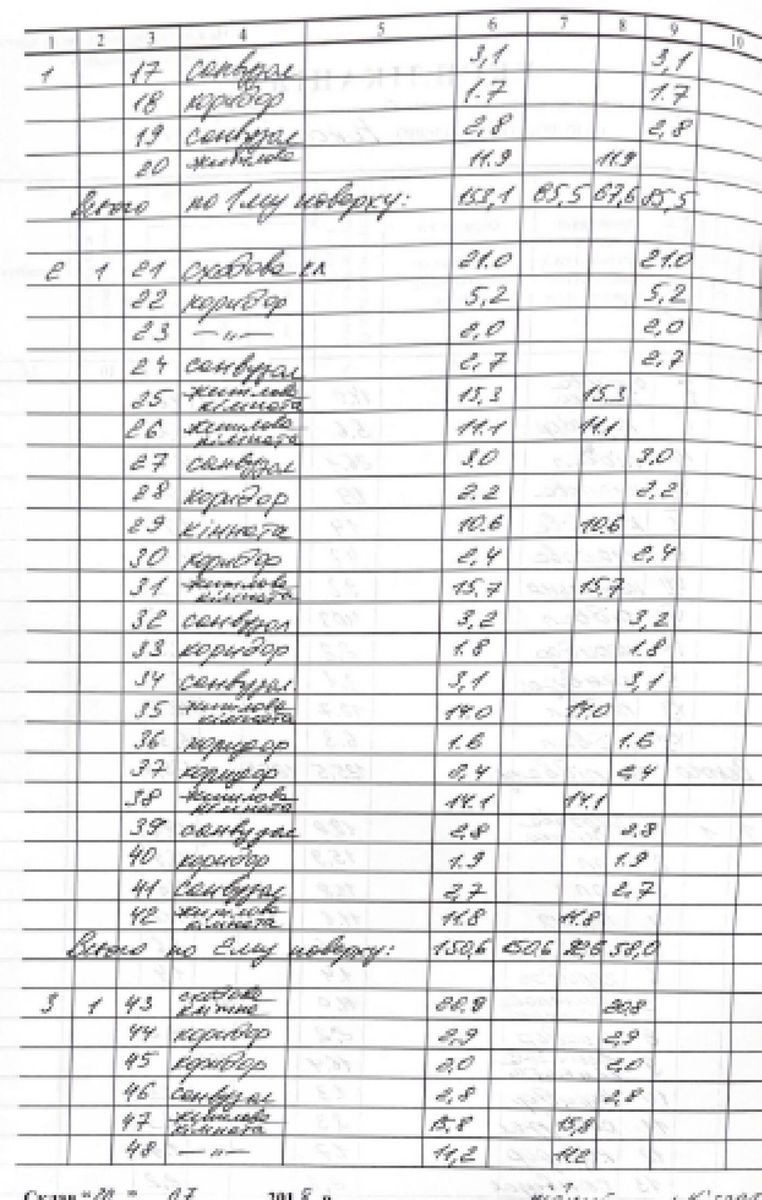 1 2 3 4 5 6 7 8 9 10
1 17 санвузол 3,1 3,1
18 коридор 1.7 1.7
19 санвузол 2,8 2,8
20 житлова 11.9 11.9
Всього по 1му поверху: 153,1 85,5 67,6 85,5
2 1 21 сходова кл 21.0 21.0
22 коридор 5,2 5,2
23 — „ — 2,0 2,0
24 санвузол 2,7 2,7
25 житлова кімната 15,3 15.3
26 житлова кімната 11.1 11.1
27 санвузол 3,0 3,0
28 коридор 2,2 2,2
29 кімната 10.6 10.6
30 коридор 2,4 2,4
31 житлова кімната 15,7 15,7
32 санвузол 3,2 3,2
33 коридор 1.8 1.8
34 санвузол 3,1 3,1
35 житлова кімната 14.0 14.0
36 коридор 1.6 1.6
37 коридор 2,4 2,4
38 житлова кімната 14.1 14.1
39 санвузол 2,8 2,8
40 коридор 1.9 1.9
41 санвузол 2,7 2,7
42 житлова кімната 11.8 11.8
Всього по 2му поверху: 150,6 150,6 92,6 58,0
3 1 43 сходова клітина 20.8 20.8
44 коридор 2,9 2,9
45 коридор 2,0 2,0
46 санвузол 2,8 2,8
47 житлова кімната 15,8 15,8
48 — „ — 11,2 11.2
07